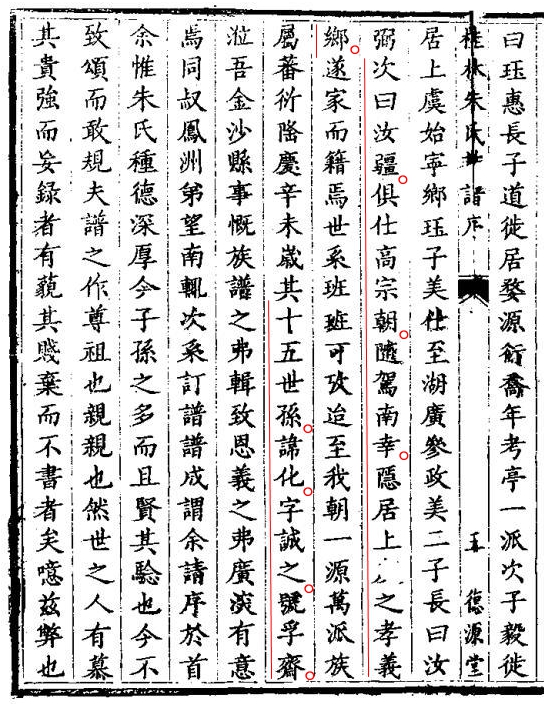 曰珏惠長子道徙居婺源衍喬年考亭一派次子毅徙
桂林朱氏世譜序 五 德源堂
居上虞始寧鄉珏子美仕至湖廣參政美二子長曰汝
弼次曰汝疆俱仕高宗朝隨駕南幸隱居上之孝義
鄉遂家而籍焉世系班班可攷迨至我朝一源萬派族
屬蕃衍隆慶辛未歲其十五世孫諱化字誠之號孚齋
涖吾金沙縣事慨族譜之弗輯致恩義之弗廣渙有意
焉同叔鳳洲弟望南輒次系訂譜譜成謂余請序於首
余惟朱氏種德深厚今子孫之多而且賢其驗也今不
致頌而敢規夫譜之作尊祖也親親也然世之人有慕
其貴強而妄錄者有藐其賤棄而不書者矣噫茲弊也